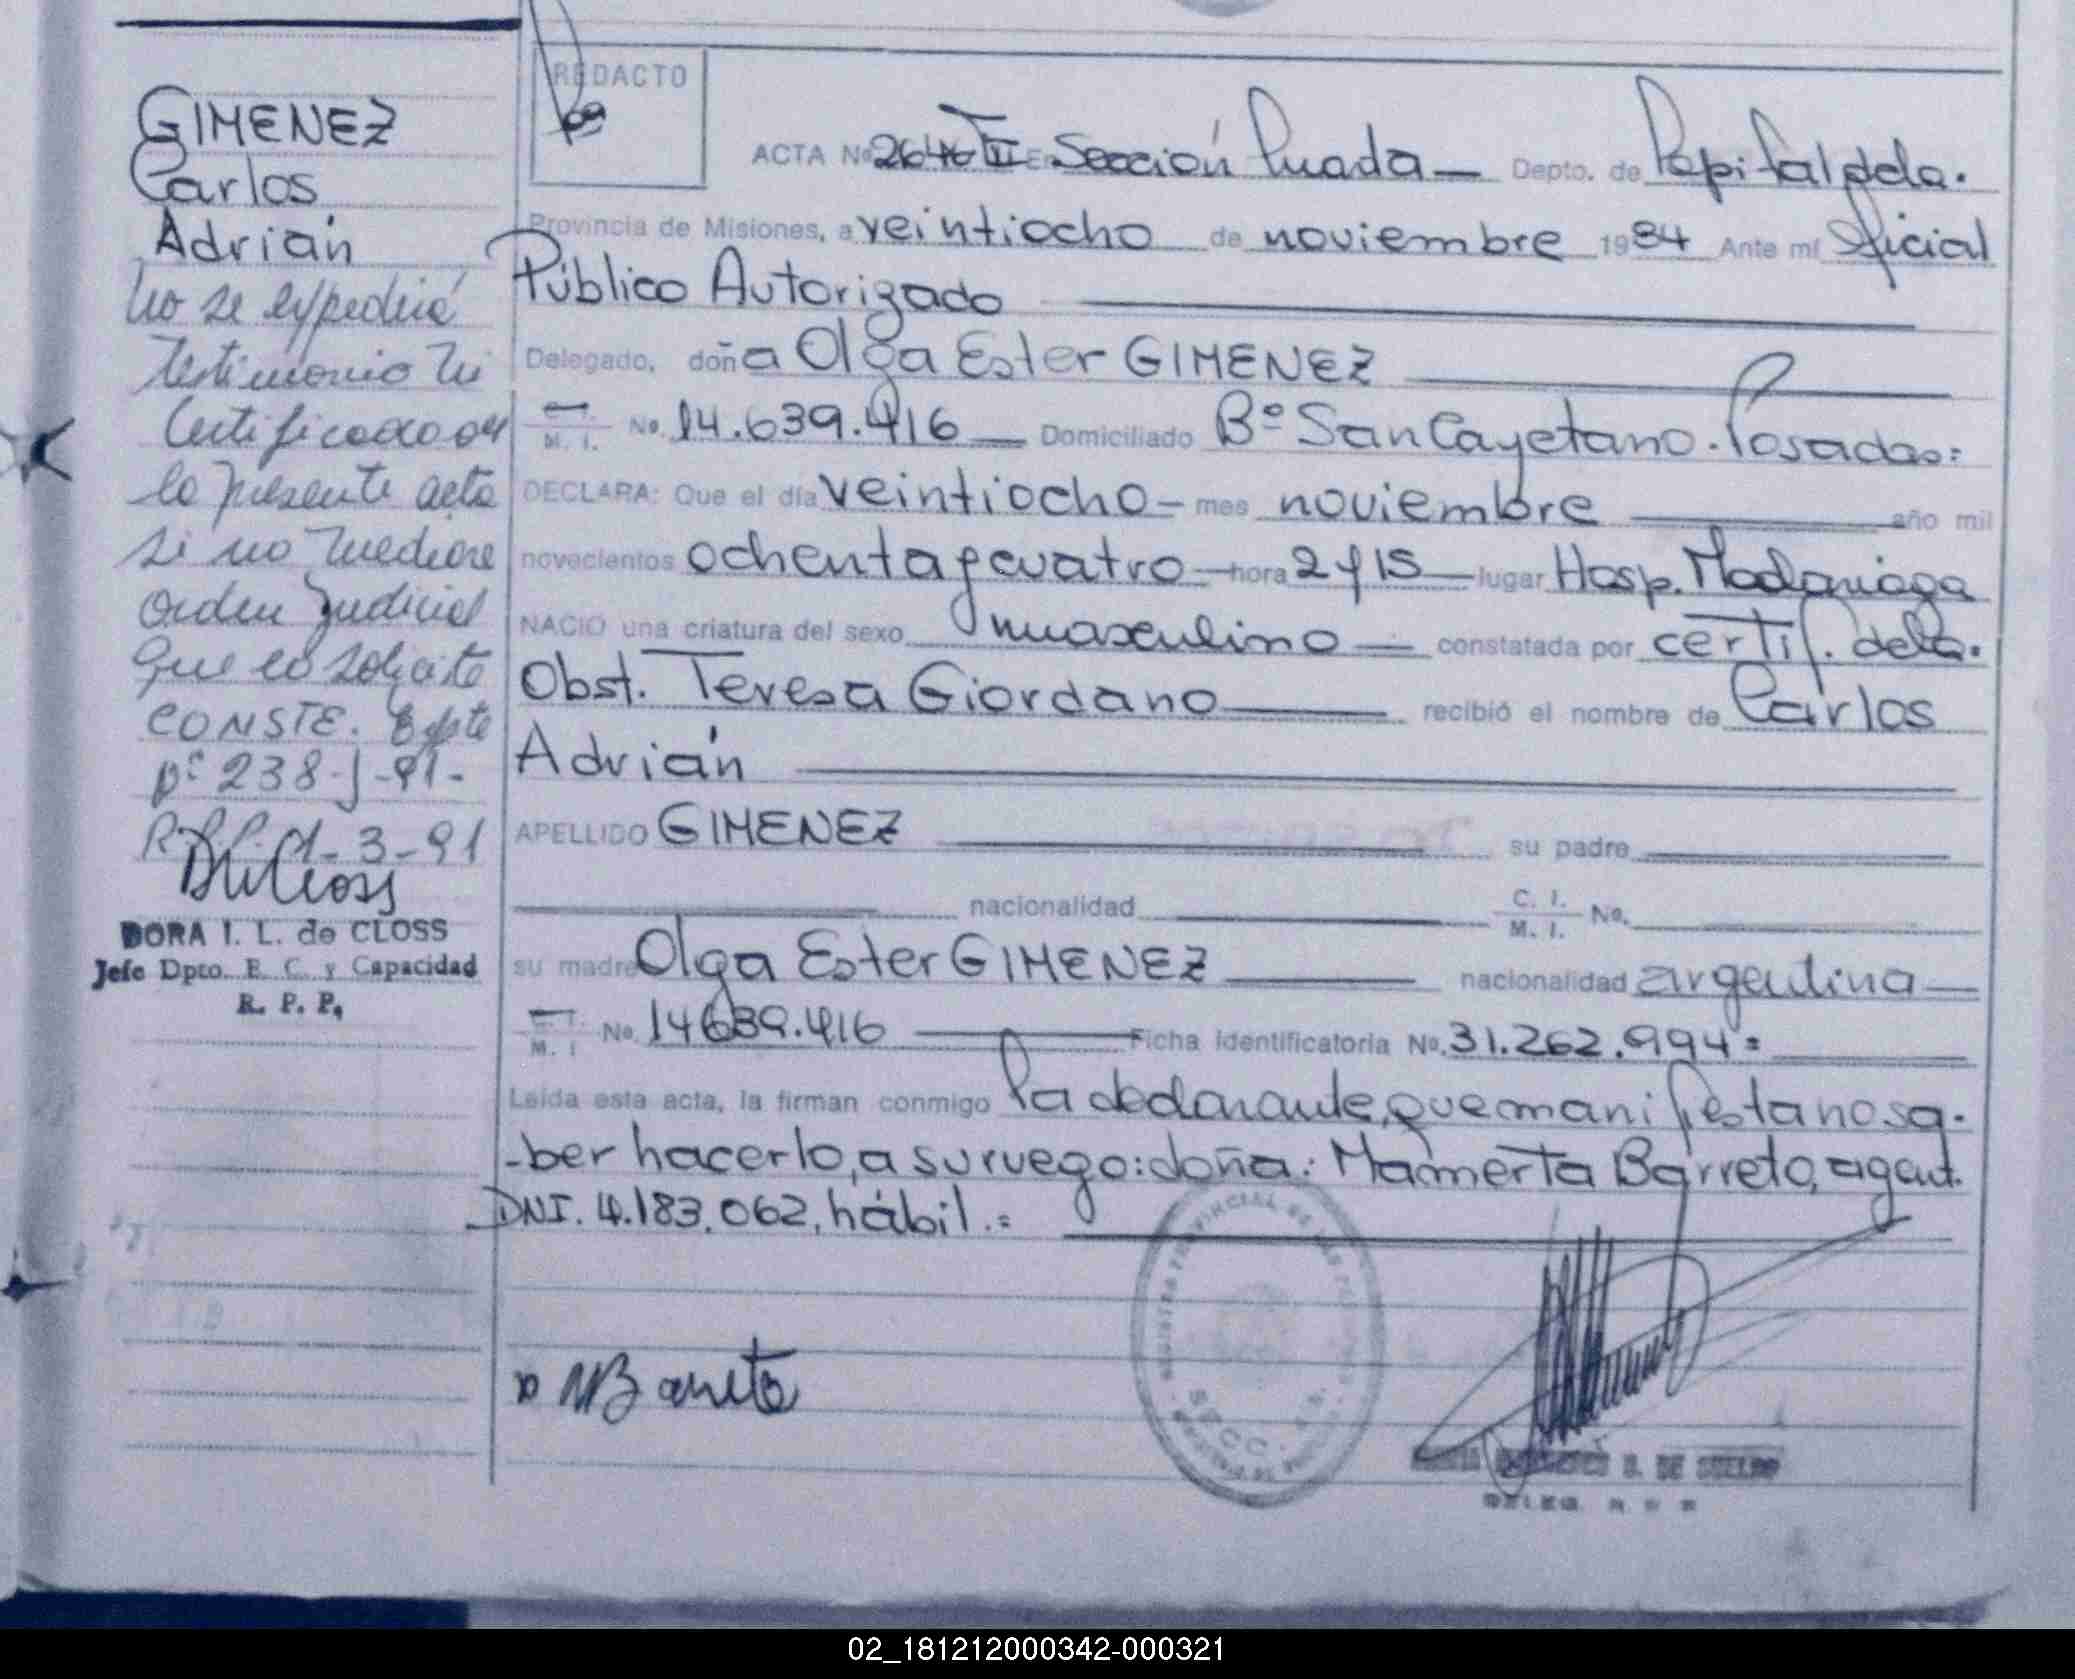 GIMENEZ
Carlos
Adrián
No se expedirá
testimonio ni
Certificado de
la presente acta
si no mediare
orden judicial
que lo solicite
CONSTE. Expte
nº 238-J-91-
3-91
DORA I. L. de CLOSS
Jefe Dpto. E. C. y Capacidad
R. P. P.
REDACTO
ACTA Nº Sección Depto. de Capital de la.
Provincia de Misiones, a veintiocho de noviembre 1984 Ante mí Oficial
Público Autorizado
Delegado, doña Olga Ester GIMENEZ
M. I. No. 14.639.416 Domiciliado Bº San Cayetano. Posadas=
DECLARA: Que el día veintiocho mes noviembre año mil
novecientos ochenta y cuatro hora 2 y 15 lugar Hosp. Madariaga
NACIO una criatura del sexo masculino constatada por certif. de la.
Obst. Teresa Giordano recibió el nombre de Carlos
Adrián
APELLIDO GIMENEZ su padre
nacionalidad C. I. M. I. No.
su madre Olga Ester GIMENEZ nacionalidad argentina
M. I No. 14639.416 Ficha identificatoria No. 31.262.994=
Leída esta acta, la firman conmigo la declarante, que manifiesta no sa-
-ber hacerlo, a su ruego: doña: Mamerta Barreto, argent.
DNI. 4.183.062, hábil.=
MBarreto
SECC.
02_181212000342-000321